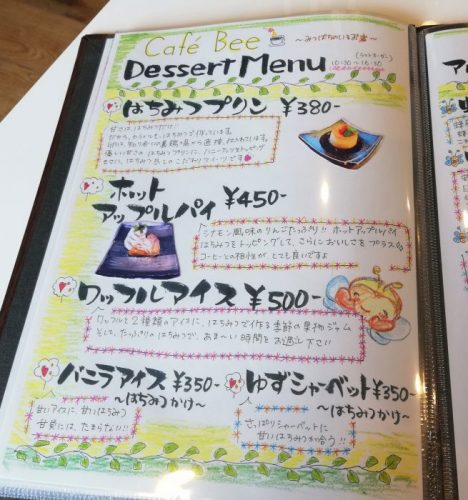 Café Bee
〜みつばちのいるお店〜
Dessert Menu
(ラストオーダー)
はちみつプリン ¥380-
甘さは、はちみつだけ!!
ホット
アップルパイ ¥450-
シナモン風味のりんごたっぷり!! ホットアップルパイ
はちみつをトッピングして、さらにおいしさをプラス
コーヒーとの相性が、とても良いですよ
ワッフルアイス ¥500-
ワッフルと2種類のアイスに、はちみつで作る季節の果物ジャム
そして、たっぷりのはちみつで、あま〜い時間をお過し下さい
バニラアイス ¥350-
〜はちみつかけ〜
甘いアイスに、甘いはちみつ
甘党には、たまらない!!
ゆずシャーベット ¥350-
〜はちみつかけ〜
さっぱりシャーベットに
甘いはちみつが合う!!